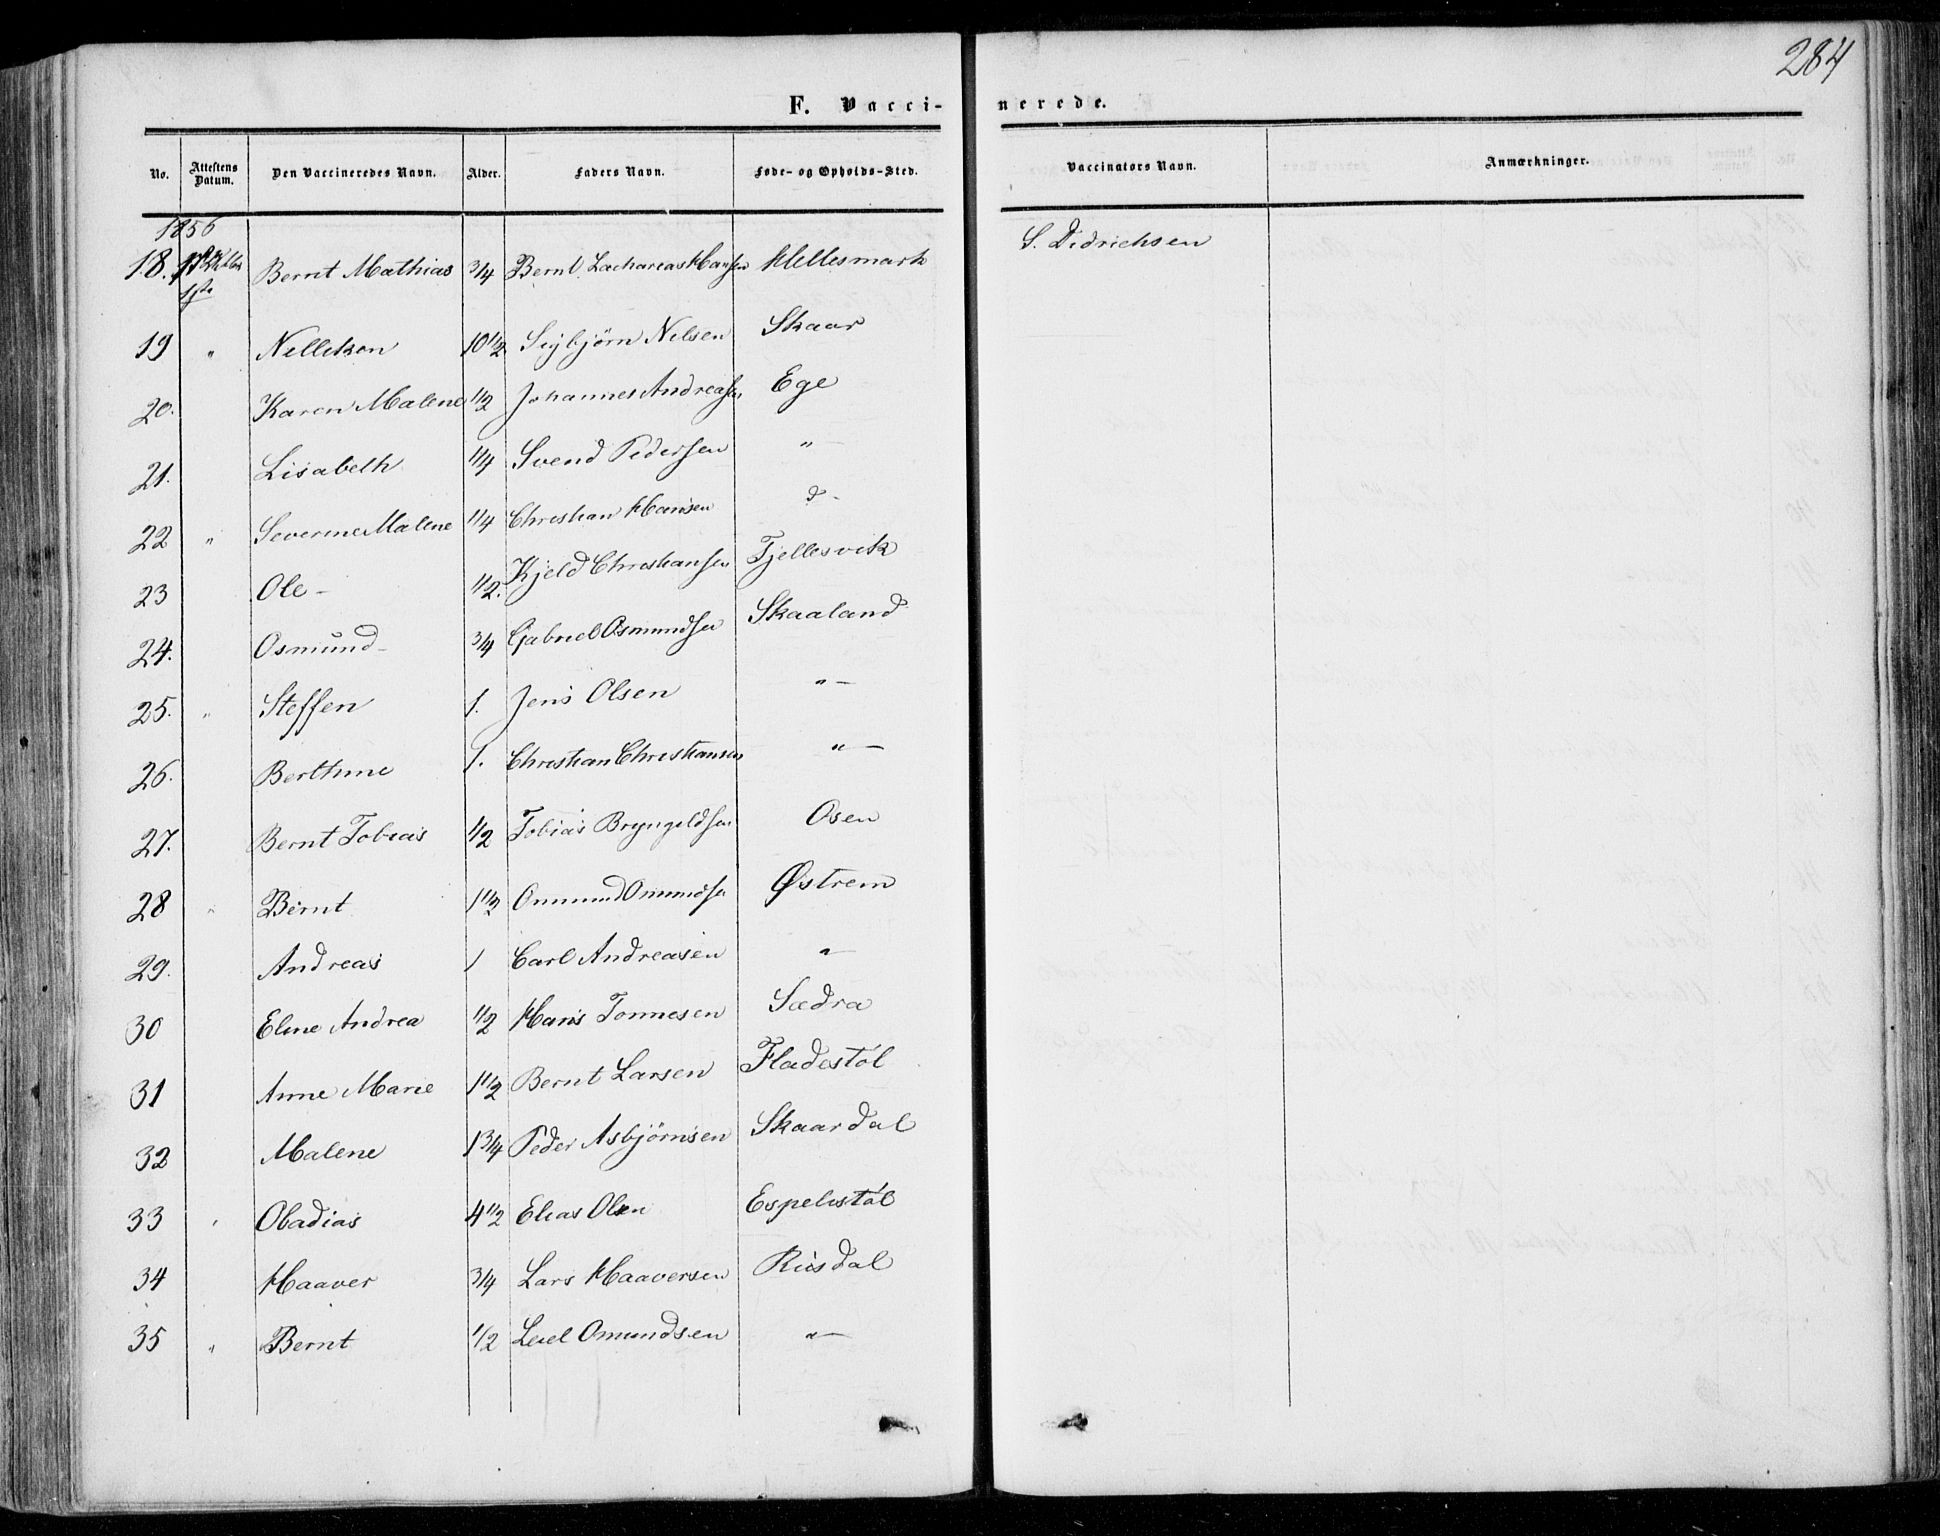 284
F. Vacci- nerede.
No. Attestens Datum. Den Vaccineredes Navn. Alder. Faders Navn. Føde- og Opholds-Sted. Vaccinators Navn. Anmærkninger.
1856
18. Bernt Mathias 3/4 Bernt Zacharias Hansen Hellesmark S. Didrichsen
19 " Nellikon 10 1/2 Sigbjørn Nilsen Skaar
20. Karen Malene 1/2 Johannes Andreassen Ege
21. Lisabeth 1/4 Svend Pedersen "
22 " Severine Malene 1/4 Christian Hansen d-
23 Ole - 1/2. Kjeld Christiansen Tjellesvik
24. Osmund- 3/4 Gabriel Osmundsen Skaaland
25. " Steffen 1. Jens Olsen "-
26. Berthine 1. Christian Christiansen "-
27. Bernt Tobias 1/2 Tobias Bryngeldsen Osen
28 " Bernt 1 1/2 Ommund Omundsen Østrem
29. Andreas 1 Carl Andreasen "-
30 Eline Andrea 1/2 Hans Tonnesen Sædra
31 Anne Marie 1 1/2 Bernt Larsen Fladestøl
32 Malene 1 3/4 Peder Asbjørnsen Skaardal
33 " Obadias 4 1/2 Elias Olsen Espelistøl
34 Haaver 3/4 Lars Haaversen Ruisdal
35 " Bernt 1/2 Omundsen "-